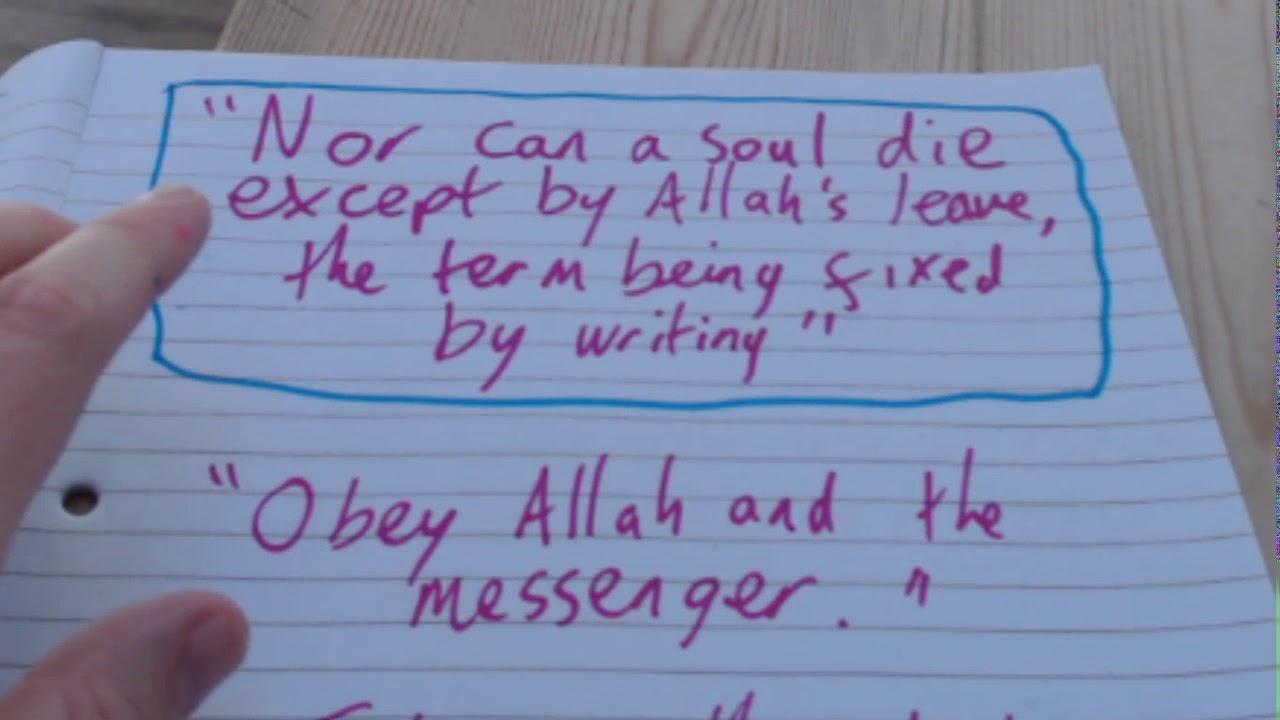 "Nor can a soul die
except by Allah's leave,
the term being fixed
by writing"
"Obey Allah and the
messenger."